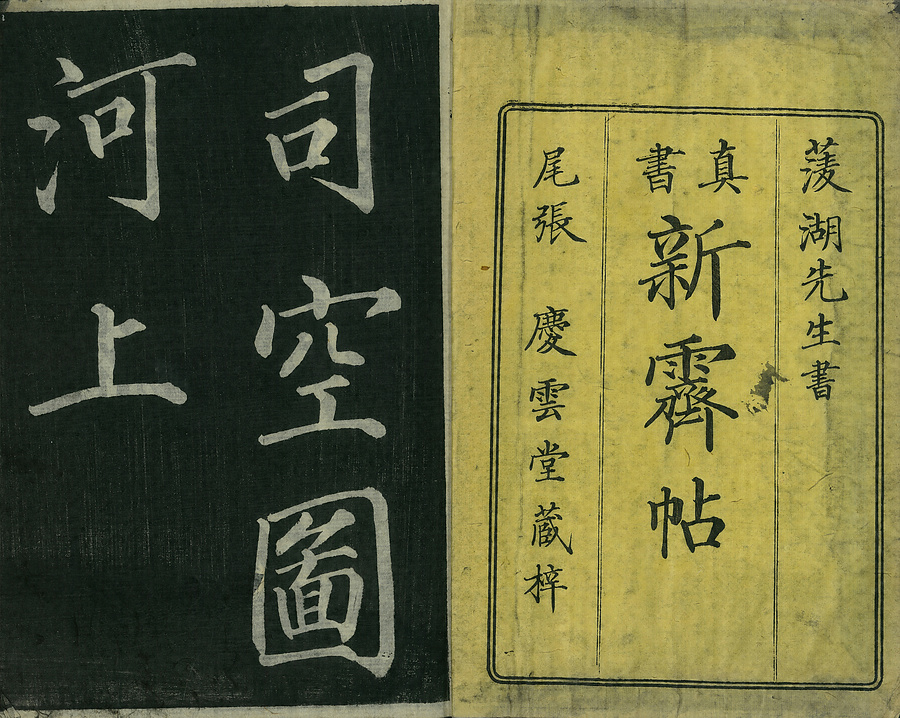 菱湖先生書
真書
新霽帖
尾張 慶雲堂蔵梓
司空圖
河上